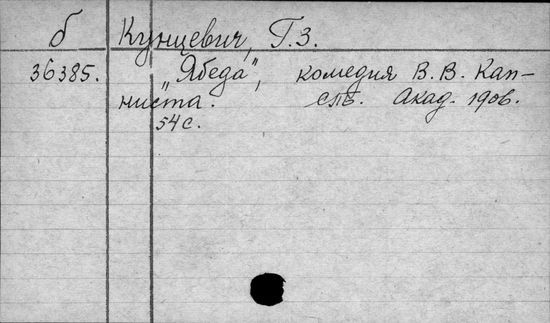 б Кунцевич, Г.З.
36385. „Ябеда“, комедия В.В. Кап-
ниста. спб. Акад. 1906.
54 с.